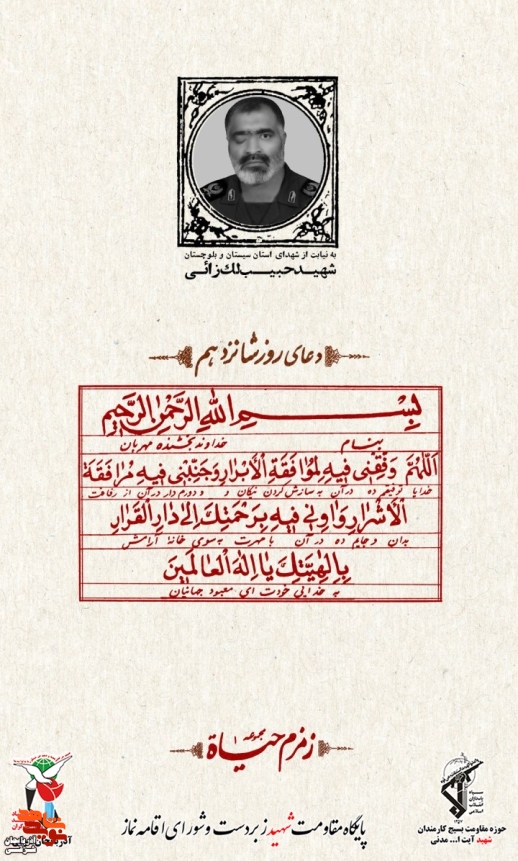 به نیابت از شهدای استان سیستان و بلوچستان
شهید حبیب لک زائی
دعای روز شانزدهم
بِسْمِ اللهِ الرَّحْمٰنِ الرَّحیمِ
بنام خداوند بخشنده مهربان
اَللّهُمَّ وَفِّقْنی فیهِ لِمُوافَقَةِ الْاَبْرارِ وَجَنِّبْنی فیهِ مُرافَقَةَ
خدایا توفیقم ده در آن به سازش کردن نیکان و دورم دار در آن از رفاقت
الْاَشْرارِ وَاوِنی فیهِ بِرَحْمَتِکَ اِلٰی دارِ الْقَرارِ
بدان و جایم ده در آن با مهرت به سوی خانهٔ آرامش
بِاِلٰهِیَّتِکَ یا اِلٰهَ الْعالَمینَ
به خدایی خودت ای معبود جهانیان
مجموعه ۱
زمزم حیاة
پایگاه مقاومت شهید زبردست و شورای اقامه نماز
سپاه پاسداران انقلاب اسلامی
حوزه مقاومت بسیج کارمندان
شهید آیت ا... مدنی